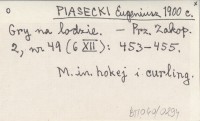 PIASECKI Eugeniusz 1900 c.
Gry na lodzie. – Prz. Zakop.
2, nr 49 (6 XII): 453–455.
M. in. hokej i curling.